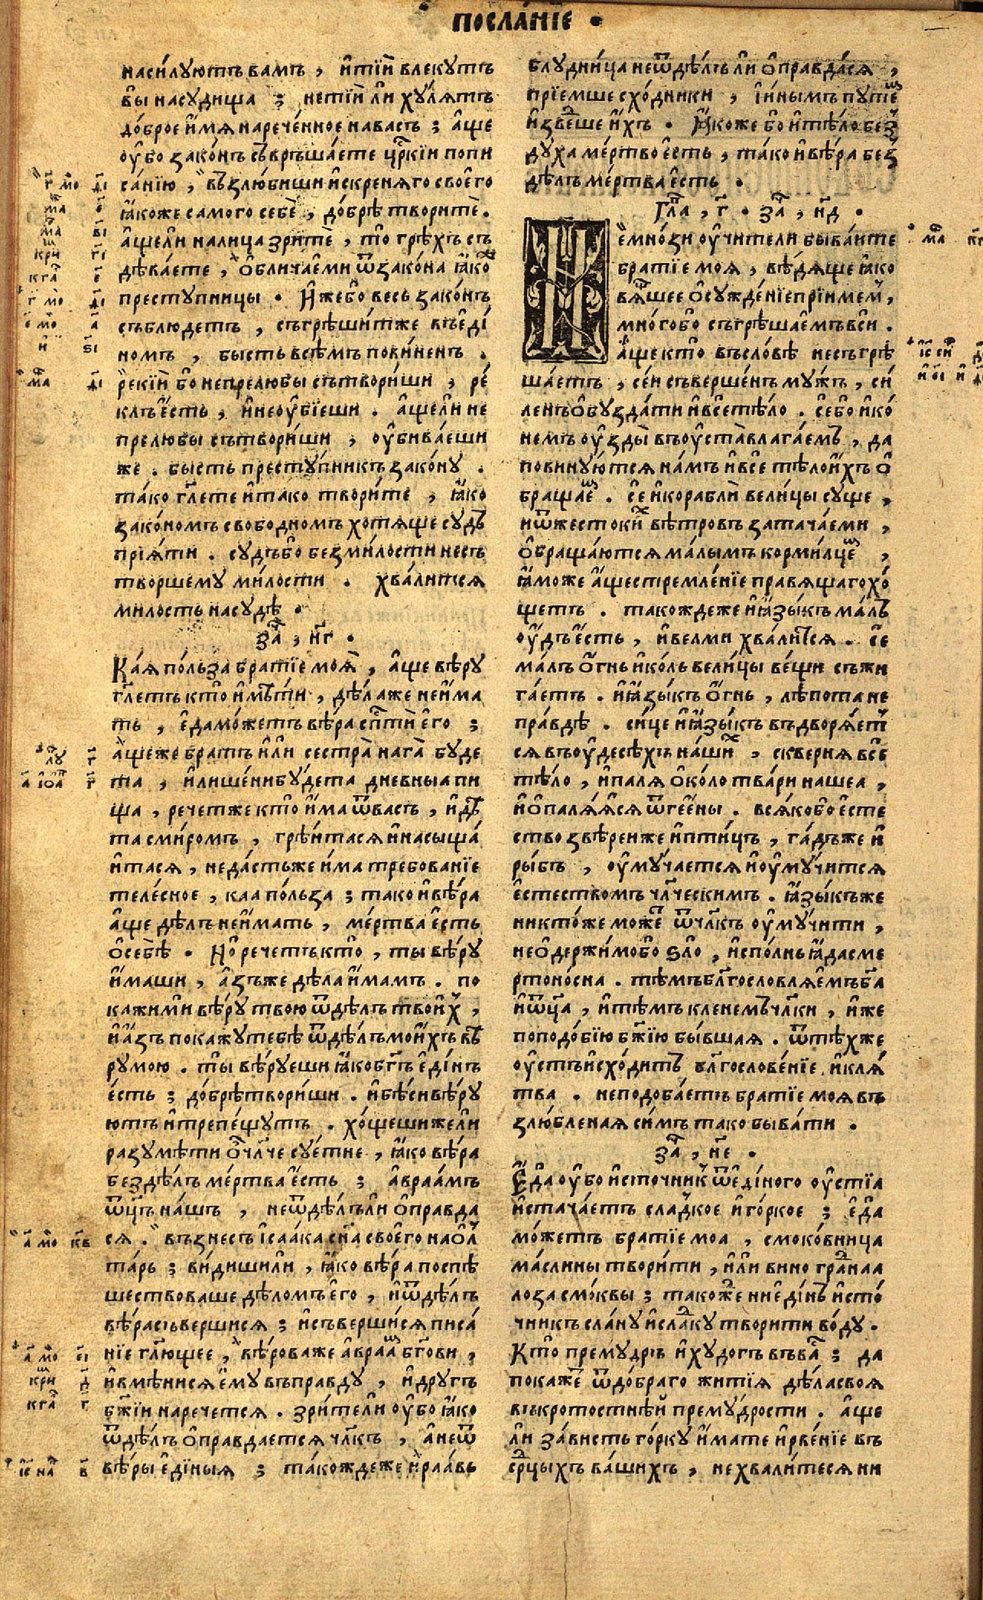 ПОСЛАНІЕ
насилуютъ вамъ, и тіи влекутъ
вы на судища; не тіи ли хулятъ
доброе имя нареченное на васъ; аще
оубо законъ съвръшаете цр҃кіи по пи
санію, възлюбиши искреняго своего
ꙗкоже самого себе, добрѣ творите.
аще ли на лица зрите, то грѣхъ съ
дѣваете, обличаеми ѿ закона ꙗко
преступницы. Иже бо весь законъ
съблюдетъ, съгрѣшит же въ еди
номъ, бысть всѣмъ повиненъ.
рекій бо не прелюбы сътвориши, ре
клъ есть, и не оубіеши. аще ли не
прелюбы сътвориши, оубиваеши
же. бысть преступникъ закону.
тако гл҃ете и тако творите, ꙗко
закономъ свободномъ хотяще судъ
пріяти. судъ бо без милости несъ
творшему милости. хвалится
милость на судѣ.
за҃, н҃г.
Кая полъза братіе моя, аще вѣру
гл҃етъ кто имѣти, дѣла же не има
ть, еда можетъ вѣра сп҃ти его;
аще же братъ или сестра нага буде
та, и лишени будета дневныа пи
ща, речет же кто има ѿ васъ, идѣ
та с миромъ, грѣитася и насыща
итася, не дастъ же има требованіе
телесное, каа полъза; тако и вѣра
аще дѣлъ не имать, мертва есть
о себѣ. Но речетъ кто, ты вѣру
имаши, азъ же дѣла имамъ. по
кажи ми вѣру твою ѿ дѣлъ твоих,
и азъ покажу тебѣ ѿ дѣлъ моихъ вѣ
ру мою. ты вѣруеши ꙗко бг҃ъ единъ
есть; добрѣ твориши. и бѣси вѣру
ютъ и трепещутъ. хощеши же ли
разумѣти о чл҃че суетне, ꙗко вѣра
без дѣлъ мертва есть; авраамъ
ѿц҃ъ нашъ, не ѿ дѣлъ ли оправда
ся. възнесъ ісаака сн҃а своего на ол
тарь; видиши ли, ꙗко вѣра поспѣ
шествоваше дѣломъ его, и ѿ дѣлъ
вѣра съвершися; и съвершися писа
ніе гл҃ющее, вѣрова же авраам бг҃ови,
и вмѣнися ему въ правду, и другъ
бж҃іи наречется. зрите ли оубо ꙗко
ѿ дѣлъ оправдается чл҃къ, а не ѿ
вѣры единыя; такождеже и раавь
блудница не ѿ дѣлъ ли оправдася,
пріемше сходники, и инымъ путем
изведше ихъ. Ꙗкоже бо и тѣло без
духа мертво есть, тако и вѣра без
дѣлъ мертва есть.
Гл҃а, г҃. за҃, н҃д.
Не мнози оучители бываите
братіе моя, вѣдяще ꙗко
вящее осужденіе пріимем,
много бо съгрѣшаемъ вси.
аще кто въ словѣ не съгрѣ
шаетъ, сеи съвершенъ мужъ, си
ленъ обуздати и все тѣло. се бо и ко
немъ оузды въ оуста влагаемъ, да
повинуются намъ и все тѣло ихъ о
бращаем. се и корабли велицы суще,
и ѿ жестоких вѣтровъ затачаеми,
обращаются малымъ кормилцем,
ꙗможе аще стремленіе правящаго хо
щетъ. такождеже и ꙗзыкъ малъ
оудъ есть, и велми хвалится. се
малъ огнь и коль велицы вещи съжи
гаетъ. и ꙗзыкъ огнь, лѣпота не
правдѣ. сице и ꙗзыкъ въдворяет
ся въ оудесѣхъ наших, скверня все
тѣло, и паля около твари нашеа,
и опаляяся ѿ геены. всяко бо есте
ство звѣреи же и птицъ, гадъ же и
рыбъ, оумучается и оумучится
естествомъ чл҃ческимъ. ꙗзыкъ же
никтоже может ѿ чл҃къ оумучити,
не одержимо бо ѕло, исполнь ꙗда сме
ртоносна. тѣмъ бл҃гословляемъ ба҃
и ѿц҃а, и тѣмъ кленемъ чл҃ки, иже
по подобію бж҃ію бывшая. ѿ тѣхже
оустъ исходитъ бл҃гословеніе, и кля
тва. не подобаетъ братіе моя въ
злюбленая симъ тако бывати.
за҃, н҃е.
Еда оубо источник ѿ единого оустіа
истачаетъ сладкое и горкое; еда
можетъ братіе моа, смоковница
маслины творити, или виноградна
лоза смоквы; такоже ни единъ исто
чникъ слану и сладку творити воду.
Кто премудръ и худогъ въ вас; да
покажет ѿ добраго житія дѣла своя
въ кротостнѣй премудрости. аще
ли зависть горку имате и рвеніе въ
ср҃дцыхъ вашихъ, не хвалитеся ни